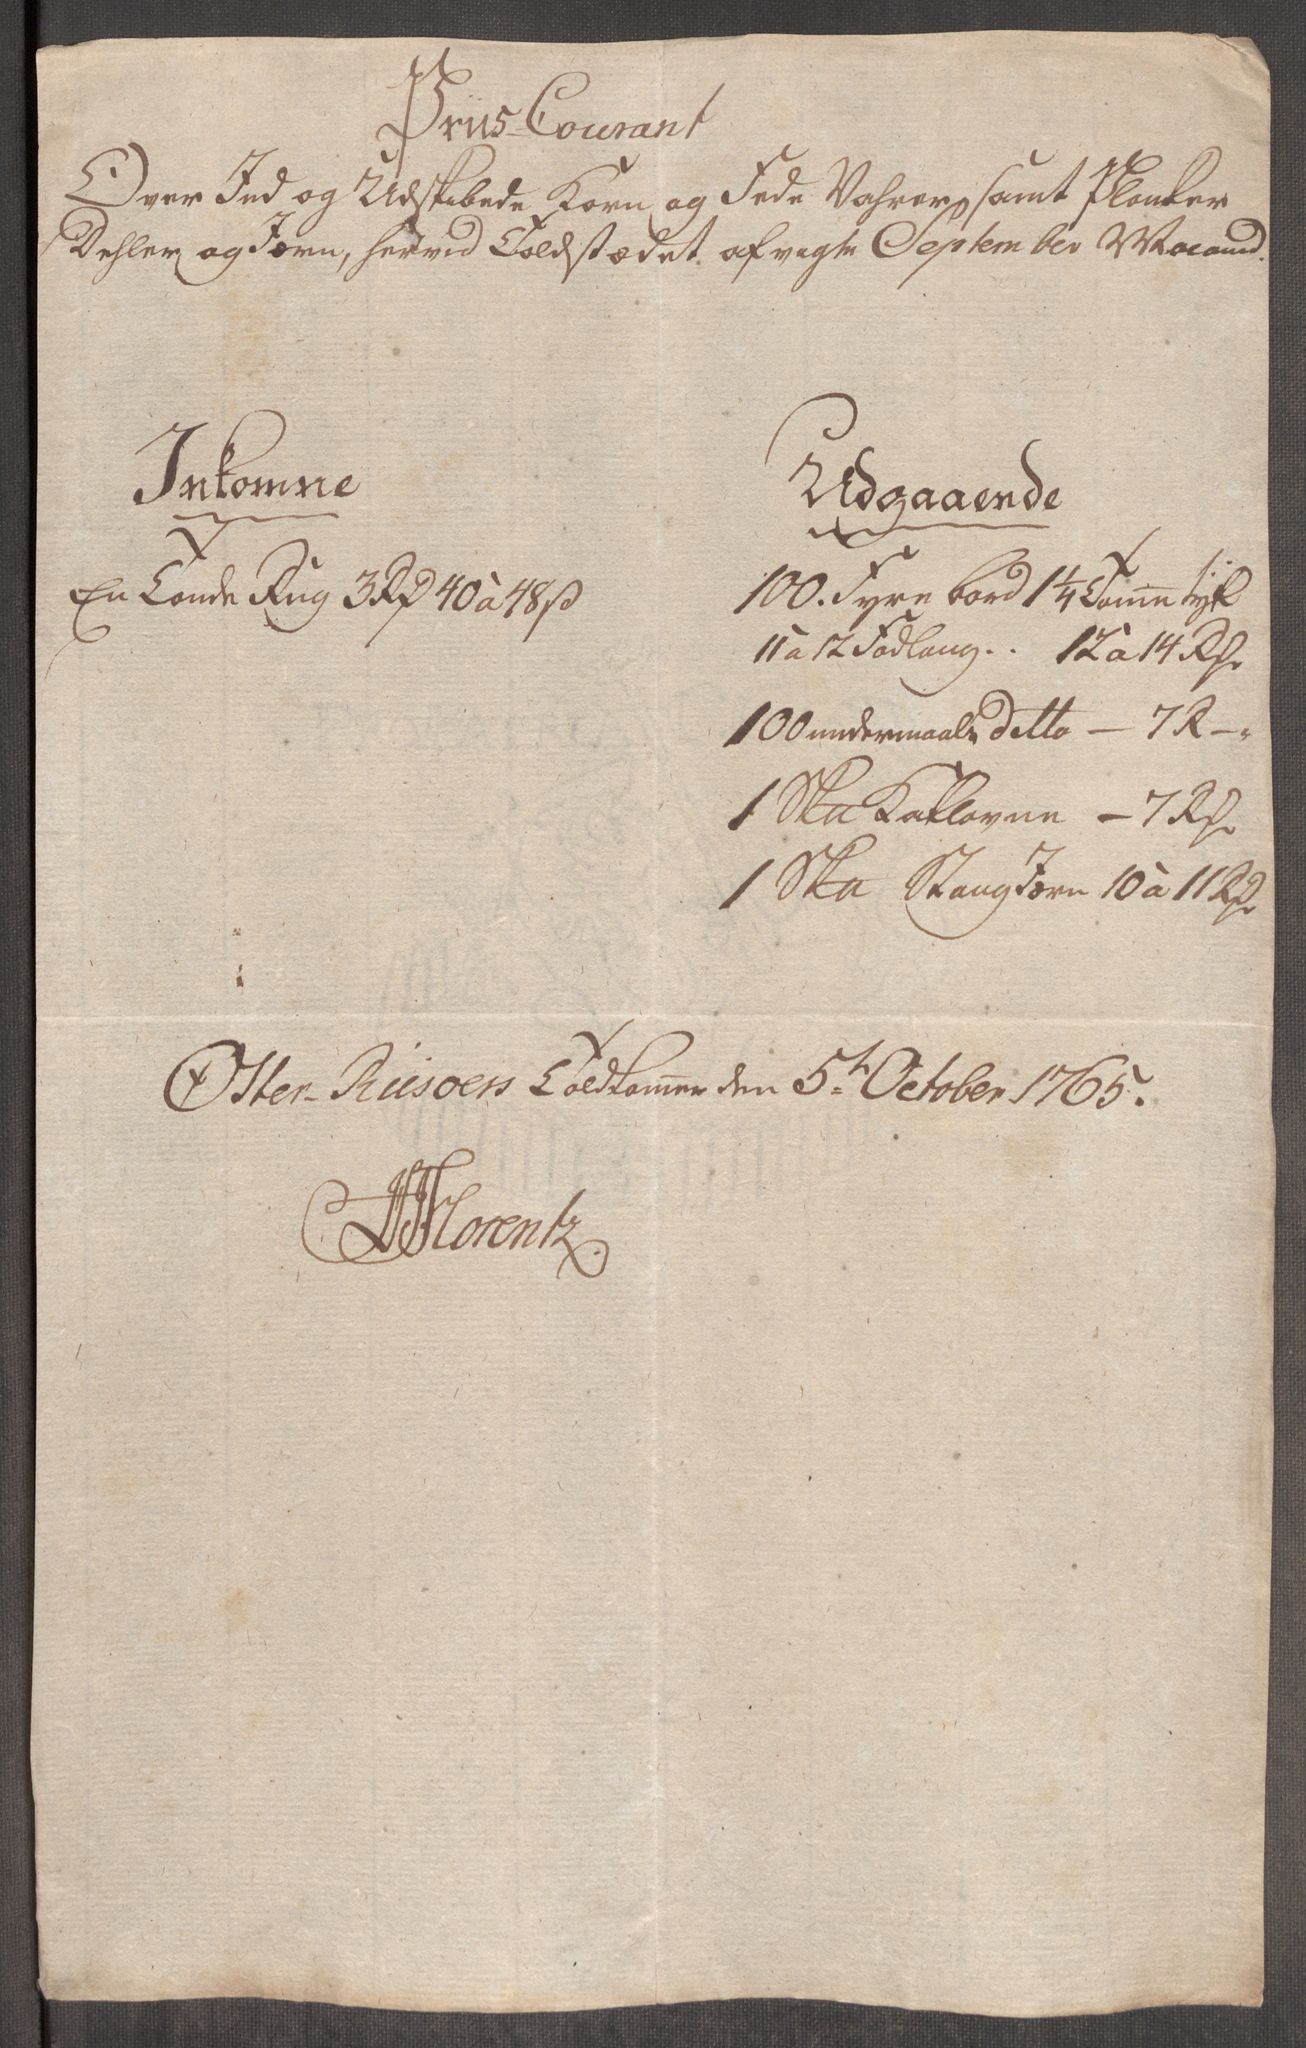 Priis-Courant
Over Ind og Udskibede Korn og Fede Vahrer, samt Planker
Dehler og Jern, herved Toldstædet afvigte September Maaned.
Inkomne
En Tønde Rug 3 Rd 40 a 48 ß
Udgaaende
100. Fyre bord 1 1/4 Tomme tyk
11 a 12 Fod lang .. 12 a 14 Rd
100 undermaals ditto — 7 R —
1 Sk℔ Kaklovne — 7 Rd
1 Sk℔ Stang Jern 10 a 11 Rd
Øster-Riisøers Toldkammer den 5te October 1765.
Florentz